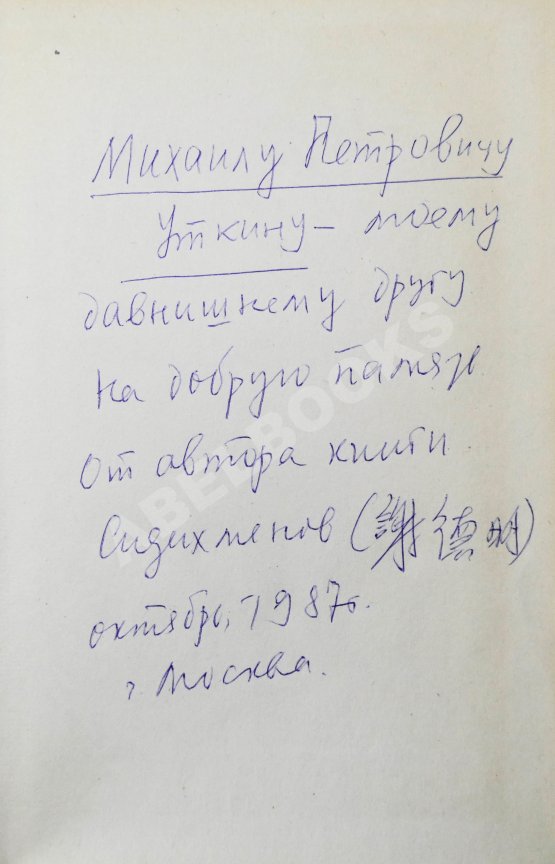 Михаилу Петровичу
Уткину – моему
давнишнему другу
на добрую память
От автора книги
Сидихменов (謝德明)
октябрь, 1987г.
г. Москва.
ABELBOOKS